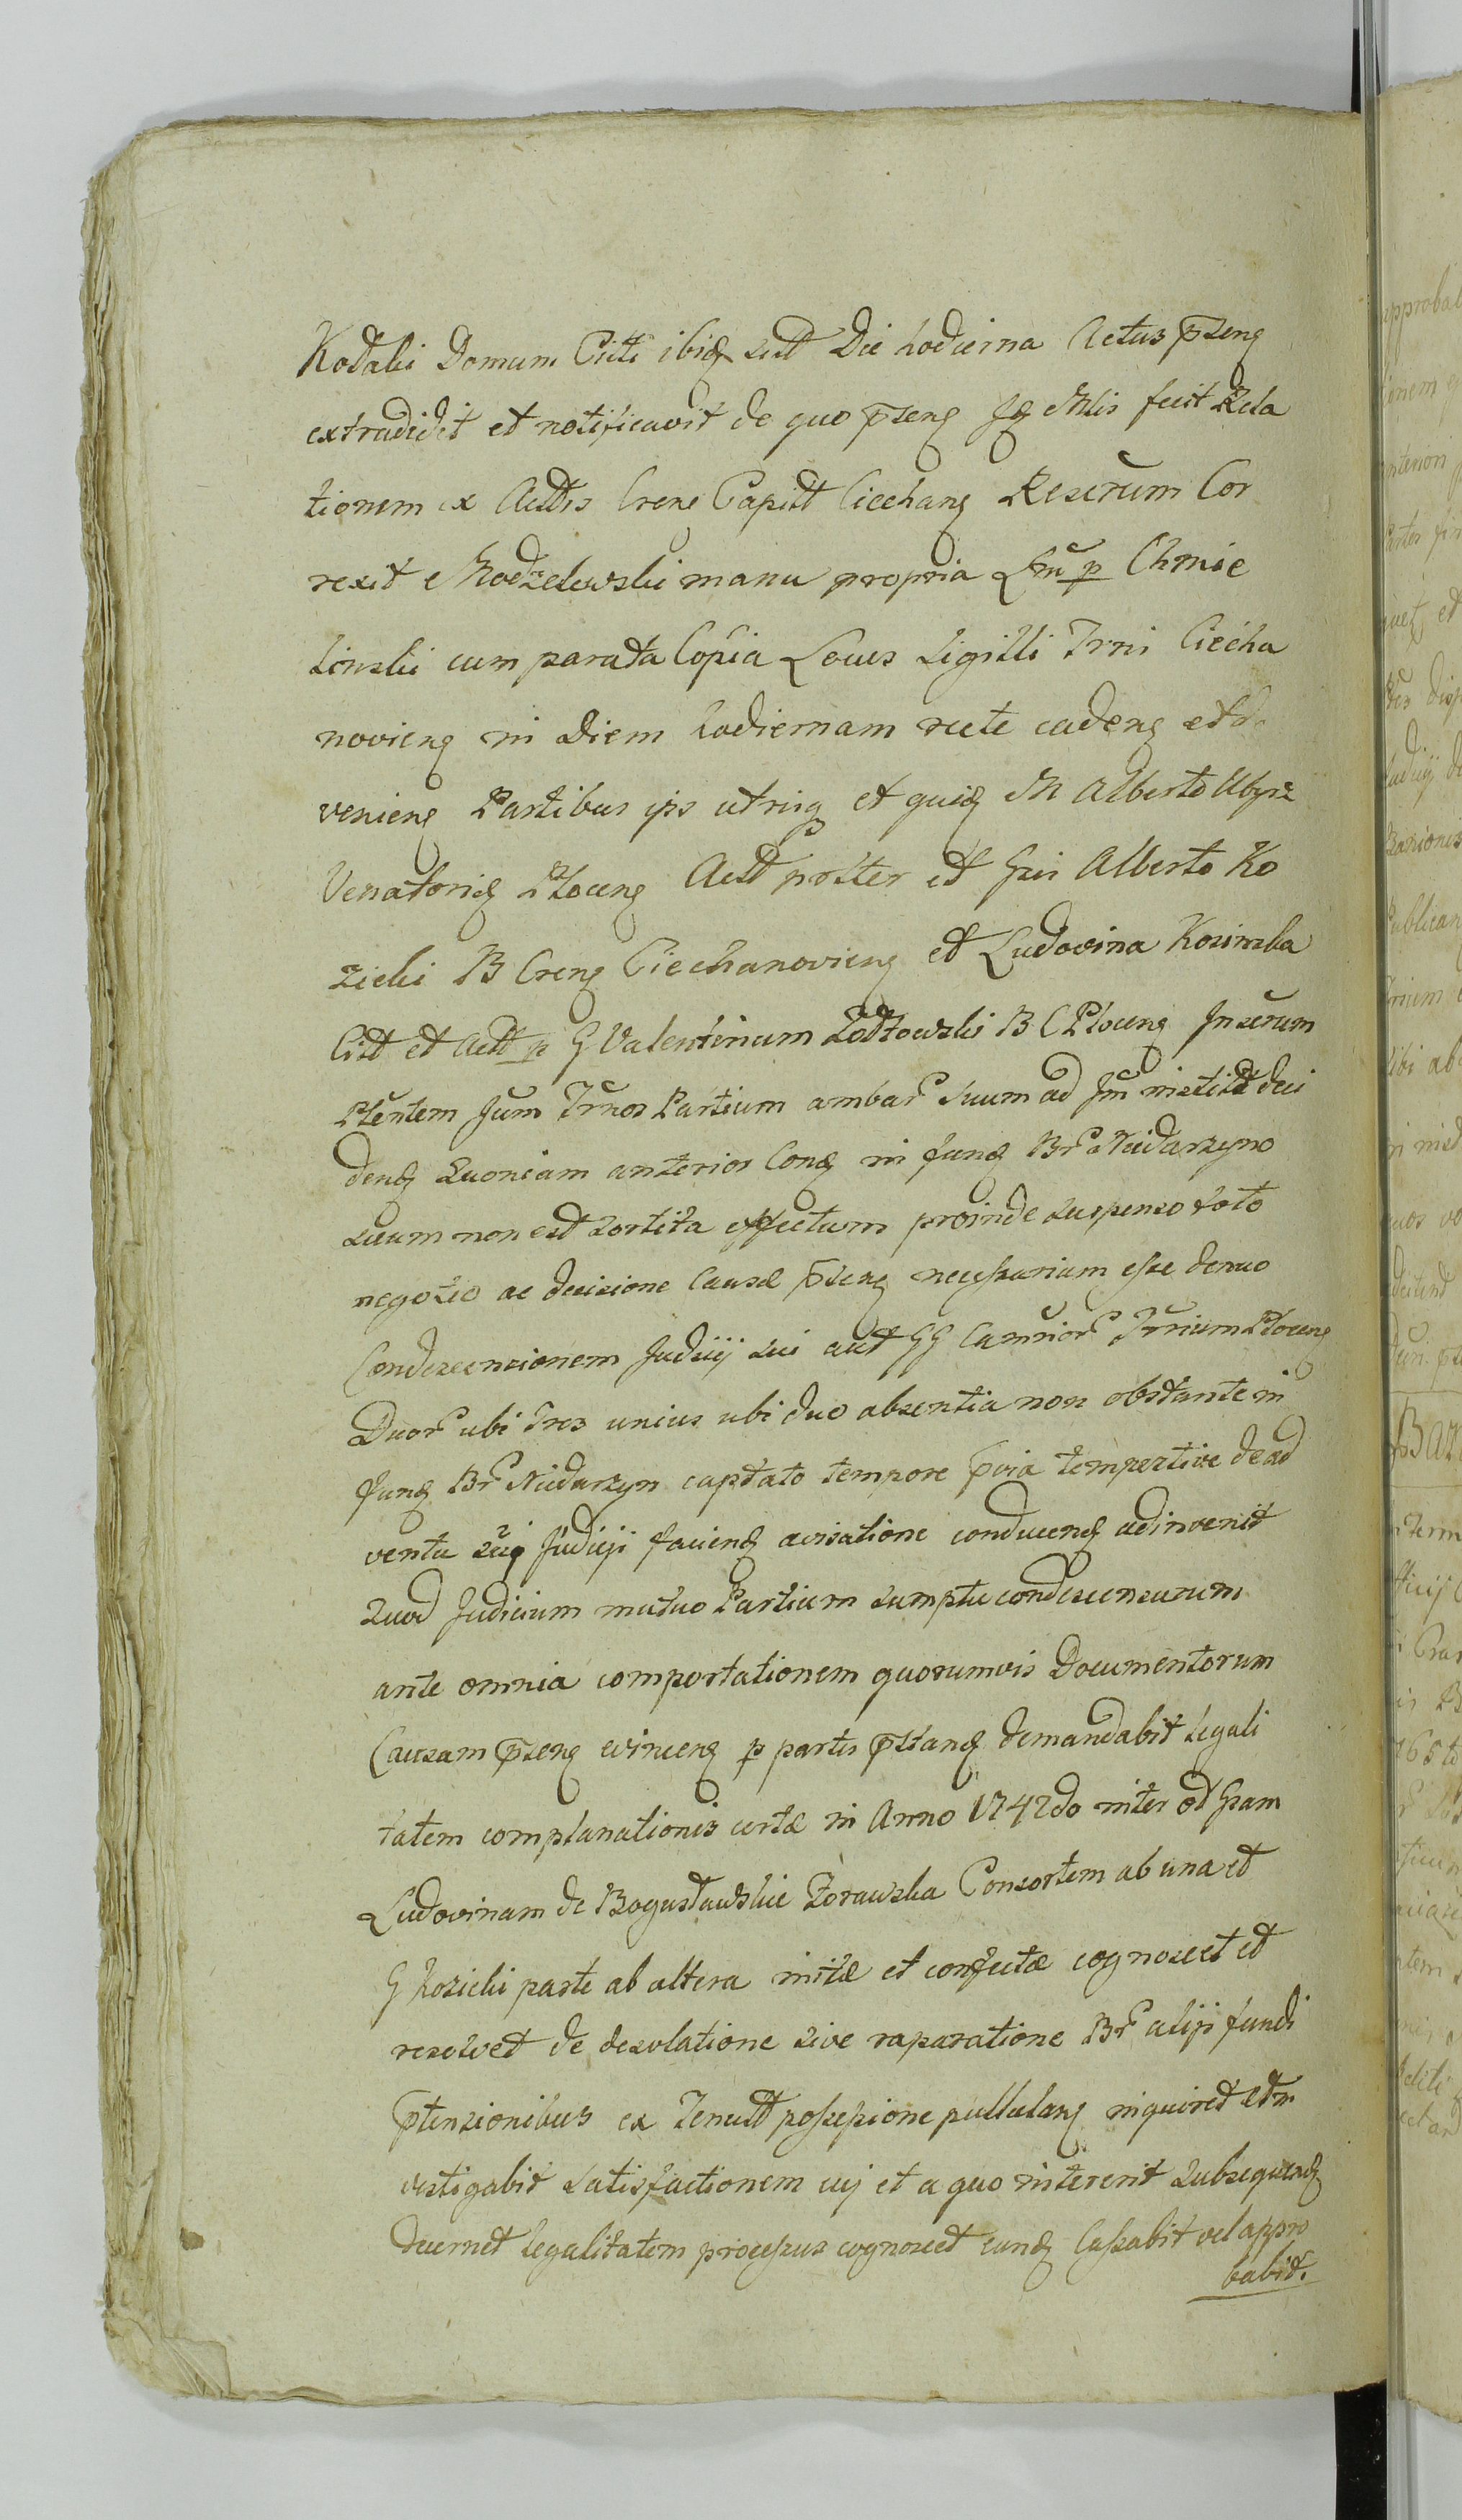 Kozicki Domum Citti ibiq est Die hodierna Actus pseng
extradidit et notificavit de quo pseng Jq Mlis fecit Rela
tionem ex Acttis Crene Capitt Ciechang Reserum Cor
rexit Modzelewski manu propria Lm p Chmie
linski cum parata Copia Locus Sigilli Trni Ciecha
novieng in Diem hodiernam recte cadeng et
venieng Partibus ips utrisq et quiq M Alberto
Venatoriq Ploceng Actt post ter et Gsi Alberto Ko
zicki B Creng Ciechanovieng et Ludovina Kosinska
Citt et Actt p G Valentinum Lodtowski B C Ploceng Inserum
Ptentem Jum Trnos Partium ambar suum ad Jm institt deci
denq Quoniam anterior Conq in funq Br Niedarzyno
suum non est sortita effectum proinde suspenso toto
negotio ac decisione Causæ pseng necessarium esse denuo
Condescensionem Judicij sui aut GG Camrior Trrium Ploceng
Duor ubi Tres unius ubi duo absentia non obstante in
funq Br Niedarzyn captato tempore pvia tempestive de ad
ventu sui Judicij facienq avisatione conducenq adinvenit
Quod Judicium mutuo Partium sumptu condescensurum
ante omnia comportationem quorumvis Documentorum
Causam pseng evinceng p partes pstanq demandabit Legali
tatem complanationis certæ in Anno 1742do inter od Gsam
Ludovinam de Bogustawskie Zorawska Consortem ab una et
G Kozicki parte ab altera initæ et confectæ cognoscet et
resolvet de desolatione sive raparatione Br alijs fundi
ptensionibus ex Tenutt possessione pullulang inquiret et in
vestigabit satisfactionem cuj et a quo intererit subsequenq
decernet legalitatem processus cognoscet eunq Cassabit vel appro
babit.